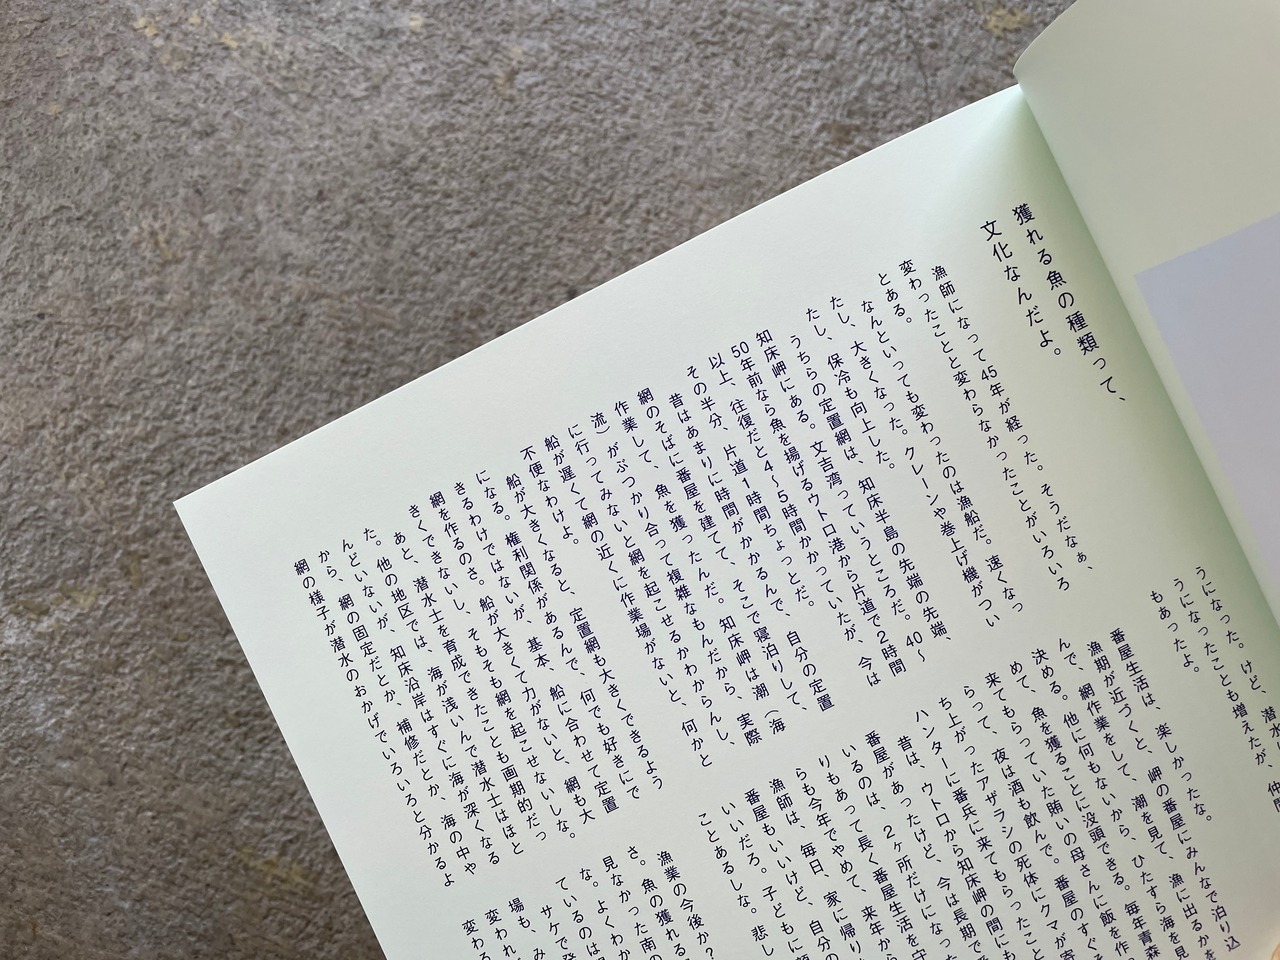 獲れる魚の種類って、
文化なんだよ。
漁師になって45年が経った。そうだなぁ、
変わったことと変わらなかったことがいろいろ
とある。
なんといっても変わったのは漁船だ。速くなっ
たし、大きくなった。クレーンや巻上げ機がつい
たし、保冷も向上した。
うちらの定置網は、知床半島の先端の先端、
知床岬にある。文吉湾っていうところだ。40〜
50年前なら魚を揚げるウトロ港から片道で2時間
以上、往復だと4〜5時間かかっていたが、今は
その半分、片道1時間ちょっとだ。
昔はあまりに時間がかかるんで、自分の定置
網のそばに番屋を建てて、そこで寝泊りして、
作業して、魚を獲ったんだ。知床岬は潮（海
流）がぶつかり合って複雑なもんだから、実際
に行ってみないと網を起こせるかわからんし、
船が遅くて網の近くに作業場がないと、何かと
不便なわけよ。
船が大きくなると、定置網も大きくできるよう
になる。権利関係があるんで、何でも好きにで
きるわけではないが、基本、船に合わせて定置
網を作るのさ。船が大きくて力がないと、網も大
きくできないし、そもそも網を起こせないしな。
あと、潜水士を育成できたことも画期的だっ
た。他の地区では、海が浅いんで潜水士はほと
んどいないが、知床沿岸はすぐに海が深くなる
から、網の固定だとか、補修だとか、海の中や
網の様子が潜水のおかげでいろいろと分かるよ
うになった。けど、潜水
うになったことも増えたが、仲間
もあったよ。
番屋生活は、楽しかったな。
漁期が近づくと、岬の番屋にみんなで泊り込
んで、網作業をして、潮を見て、漁に出るかを
決める。他に何もないから、ひたすら海を見
めて、魚を獲ることに没頭できる。毎年青森
来てもらっていた賄いの母さんに飯を作
らって、夜は酒も飲んで。番屋のすぐそ
ち上がったアザラシの死体にクマが寄
ハンターに番兵に来てもらったこと
昔は、ウトロから知床岬の間にも
番屋があったけど、今は長期で
いるのは、2ヶ所だけになった
りもあって長く番屋生活を守
らも今年でやめて、来年から
漁師は、毎日、家に帰り
番屋もいいけど、自分の
いいだろ。子どもに
ことあるしな。悲し
漁業の今後か？
さ。魚の獲れる
見なかった南の
な。よくわか
ているのは
サケで発
場も、み
変われ
変わる